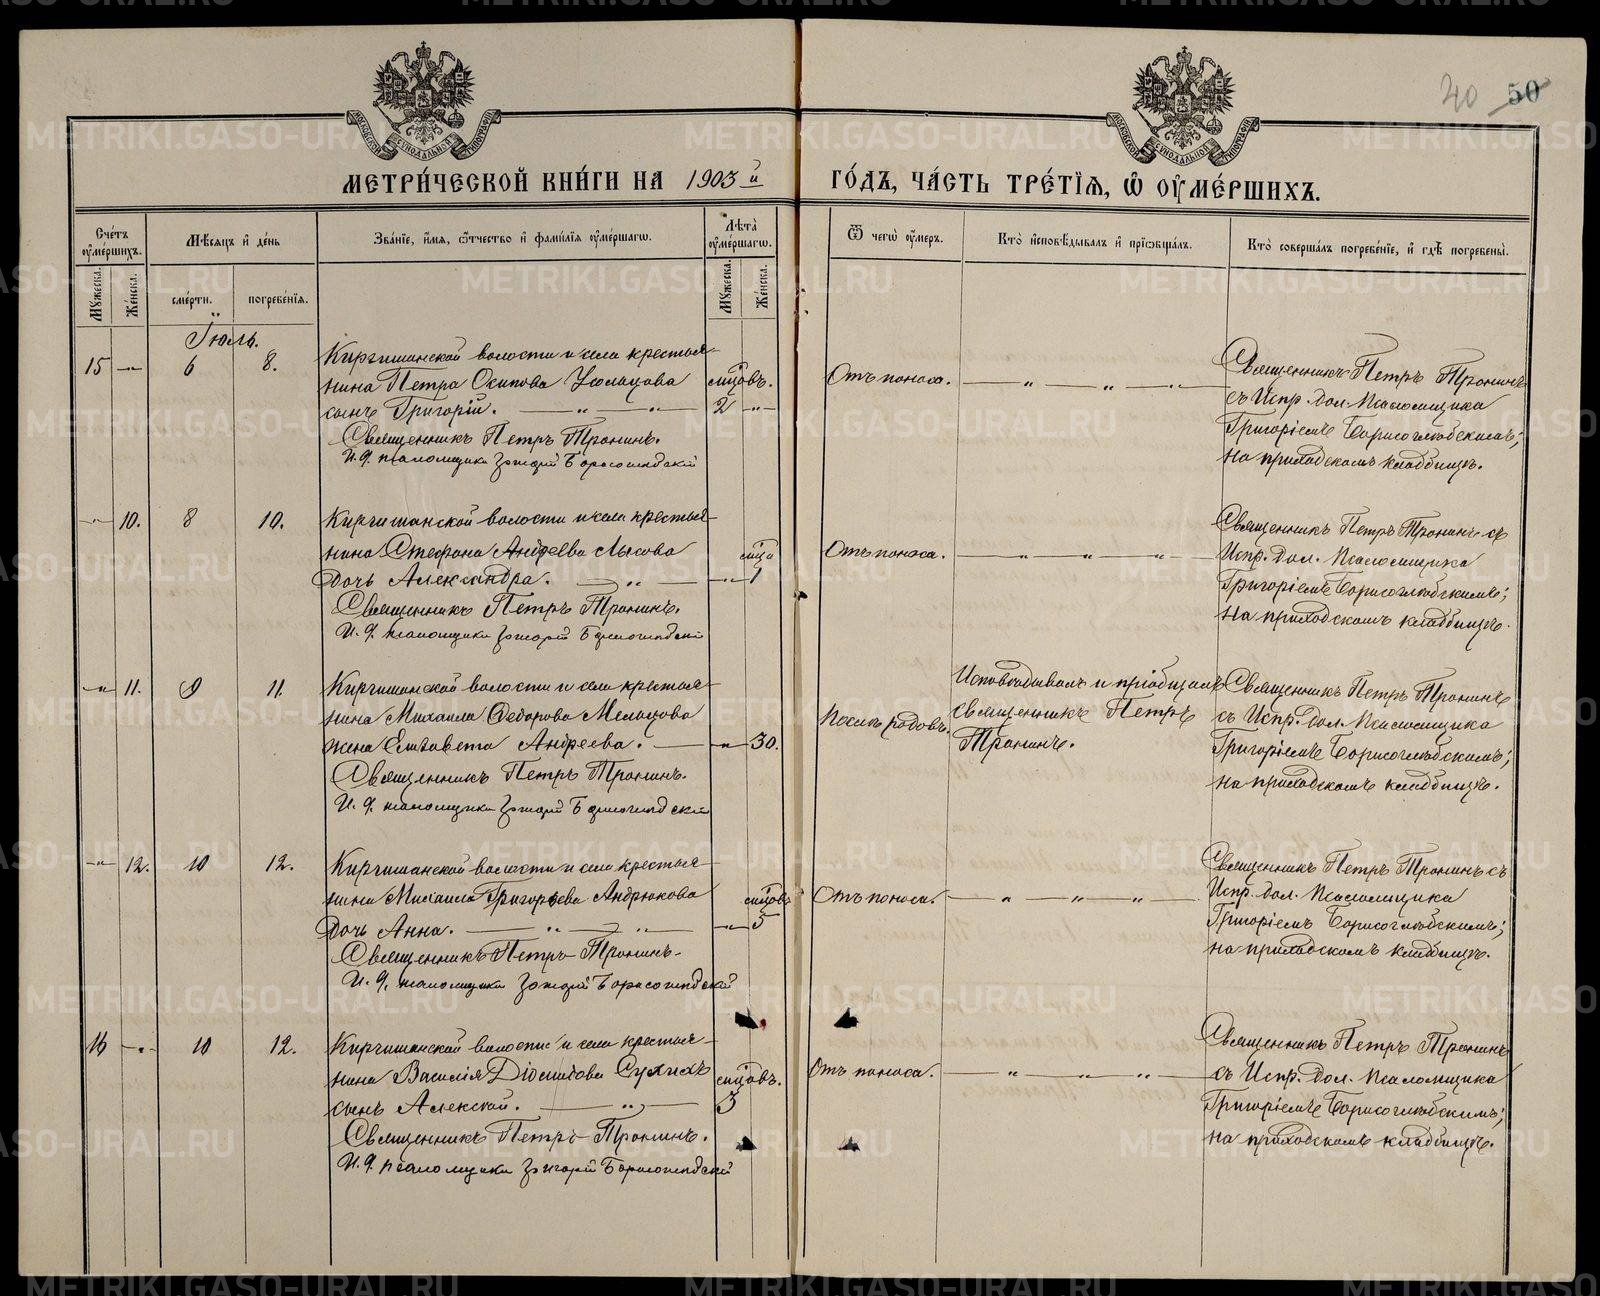 40 50
МОСКОВСКОЙ СѴНОДАЛЬНОЙ ТИПОГРАФІИ
МОСКОВСКОЙ СѴНОДАЛЬНОЙ ТИПОГРАФІИ
МЕТРИ́ЧЕСКОЙ КНИ́ГИ НА 1903й ГО́ДЪ, ЧА́СТЬ ТРЕ́ТІѦ, Ѽ ОУМЕ́РШИХЪ.
Сче́тъ оуме́ршихъ.
Мѣ́сяцъ и де́нь
Зва́ніе, и́мѧ, ѻ҆́тчество и фами́лїѧ оуме́ршагѡ.
Лѣта̀ оуме́ршагѡ.
Ѿ чегѡ̀ оу́меръ.
Кто̀ исповѣ́дывалъ и прїѡбща́лъ.
Кто̀ соверша́лъ погребе́нїе, и гдѣ̀ погребены̀.
Мꙋ́жеска.
Же́нска.
сме́рти.
погребе́нїѧ.
Мꙋ́жеска.
Же́нска.
Іюль.
15 — 6 8.
Киргишанской волости и села крестья-
нина Петра Осипова Усольцова
сынъ Григорій.
мѣсяцовъ.
2
Священникъ Петръ Тронинъ.
И. д. псаломщика Григорій Борисоглѣбскій
Отъ поноса.
Священникъ Петръ Тронинъ
съ Испр. дол. Псаломщика
Григоріемъ Борисоглѣбскимъ;
на приходскомъ кладбищѣ.
— 10. 8 10.
Киргишанской волости и села крестья-
нина Стефана Андреева Лысова
дочь Александра.
1
Священникъ Петръ Тронинъ.
И. д. псаломщика Григорій Борисоглѣбскій
Отъ поноса.
Священникъ Петръ Тронинъ съ
Испр. дол. Псаломщика
Григоріемъ Борисоглѣбскимъ;
на приходскомъ кладбищѣ.
— 11. 9 11.
Киргишанской волости и села крестья-
нина Михаила Федорова Мельцова
жена Елизавета Андреева.
30.
Священникъ Петръ Тронинъ.
И. д. псаломщика Григорій Борисоглѣбскій
Послѣ родовъ.
Исповѣдывалъ и пріобщалъ
священникъ Петръ
Тронинъ.
Священникъ Петръ Тронинъ
съ Испр. дол. Псаломщика
Григоріемъ Борисоглѣбскимъ;
на приходскомъ кладбищѣ.
— 12. 10 12.
Киргишанской волости и села крестья-
нина Михаила Григорьева Андрюкова
дочь Анна.
мѣсяцовъ
5
Священникъ Петръ Тронинъ.
И. д. псаломщика Григорій Борисоглѣбскій
Отъ поноса.
Священникъ Петръ Тронинъ съ
Испр. дол. Псаломщика
Григоріемъ Борисоглѣбскимъ;
на приходскомъ кладбищѣ.
16 — 10 12.
Киргишанской волости и села крестья-
нина Василія Діомидова Сухихъ
сынъ Алексѣй.
мѣсяцовъ.
3
Священникъ Петръ Тронинъ.
И. д. псаломщика Григорій Борисоглѣбскій
Отъ поноса.
Священникъ Петръ Тронинъ
съ Испр. дол. Псаломщика
Григоріемъ Борисоглѣбскимъ;
на приходскомъ кладбищѣ.
METRIKI.GASO-URAL.RU